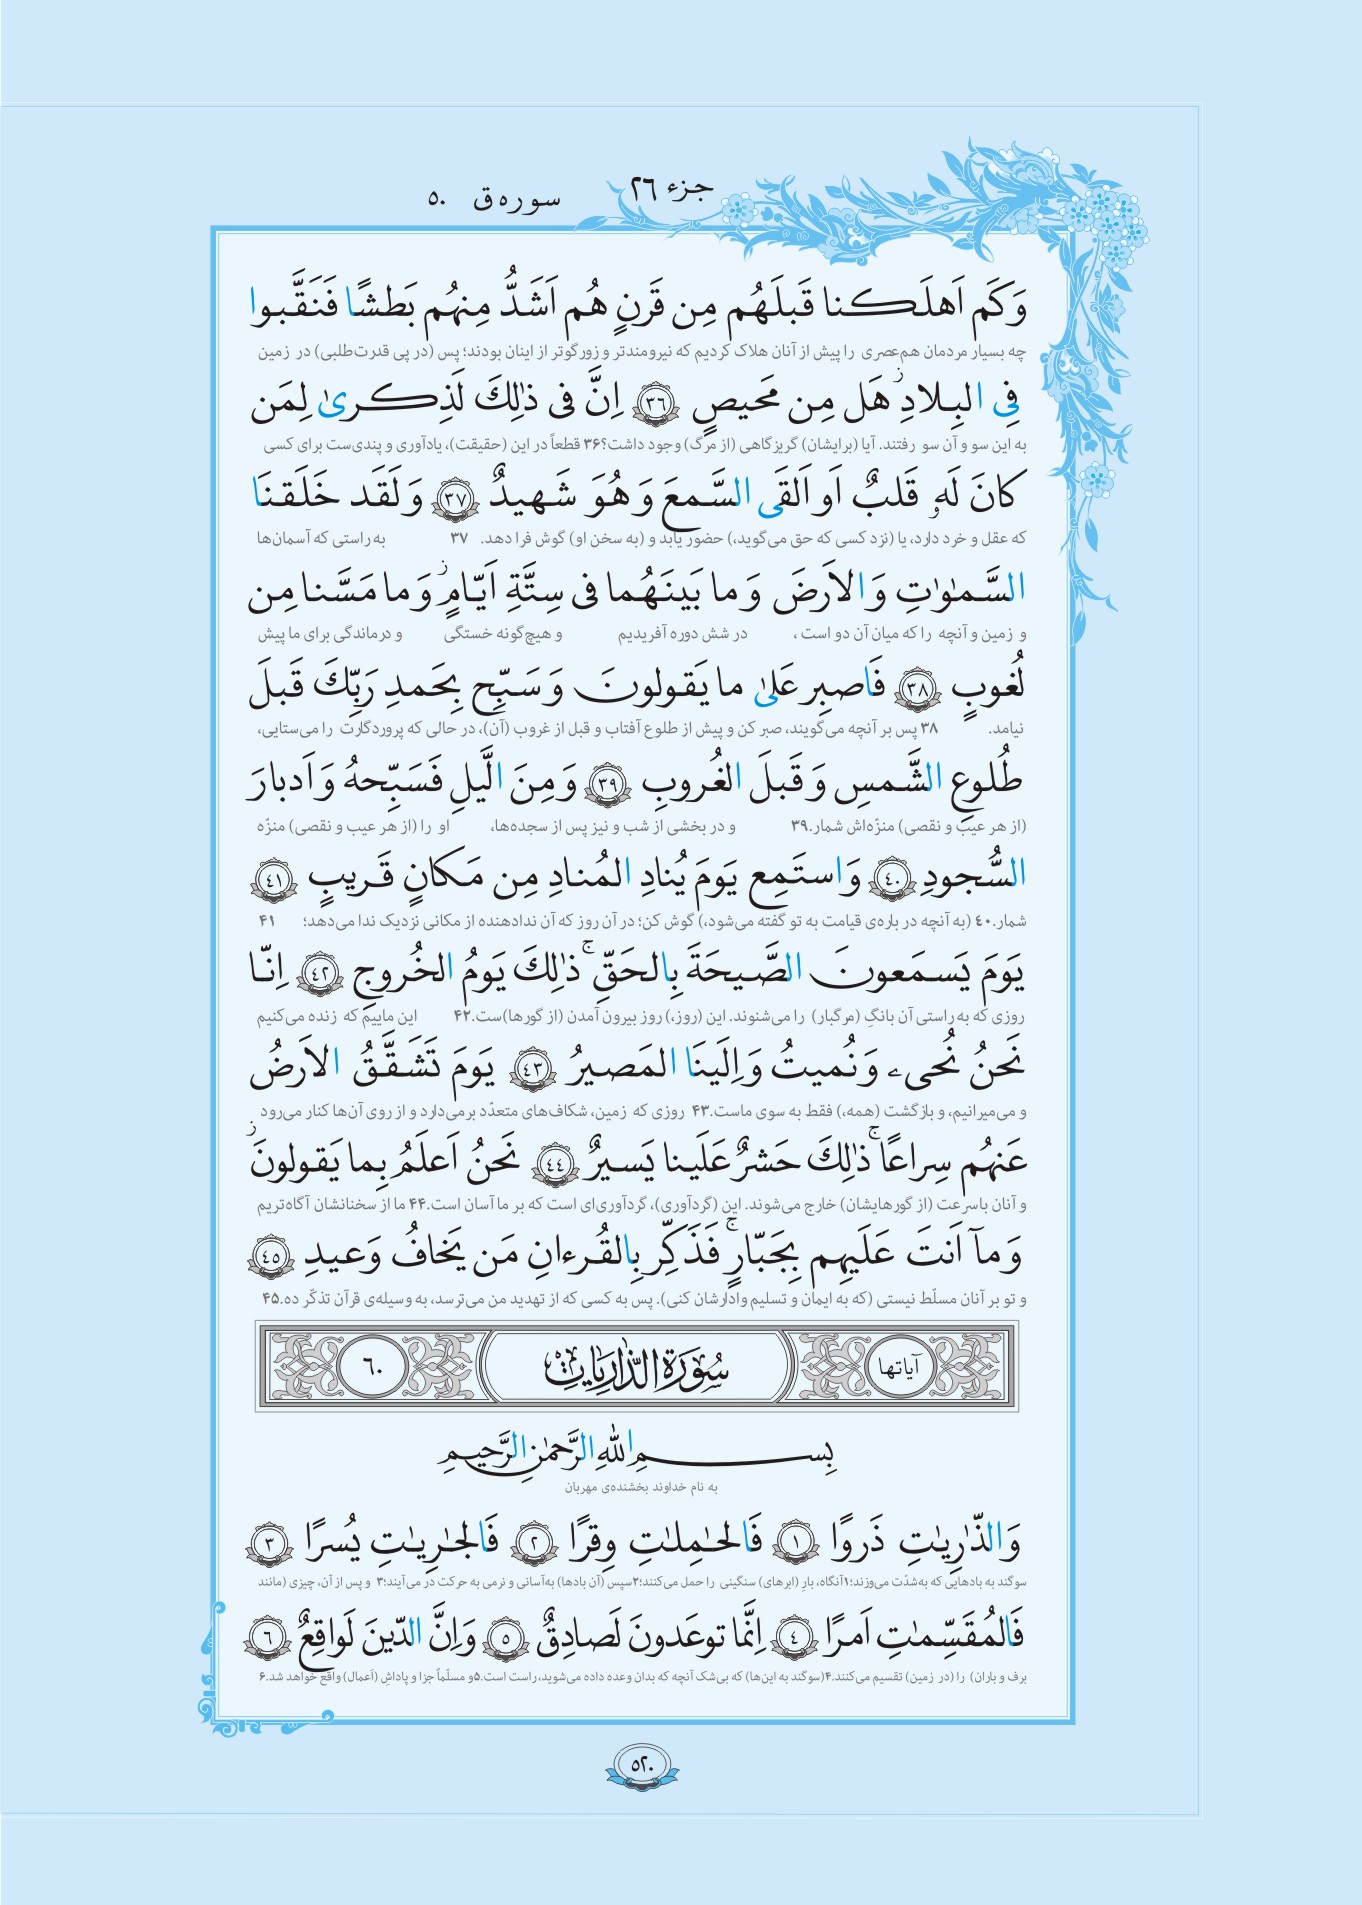 جزء ٢٦
سوره ق ٥٠
وَكَم اَهلَكنا قَبلَهُم مِن قَرنٍ هُم اَشَدُّ مِنهُم بَطشًا فَنَقَّبوا
چه بسیار مردمان هم‌عصری را پیش از آنان هلاک کردیم که نیرومندتر و زورگوتر از اینان بودند؛ پس (در پی قدرت‌طلبی) در زمین
فِی البِلادِ ز هَل مِن مَحیصٍ ٣٦ اِنَّ فی ذٰلِكَ لَذِكریٰ لِمَن
به این سو و آن سو رفتند. آیا (برایشان) گریزگاهی (از مرگ) وجود داشت؟۳۶ قطعاً در این (حقیقت)، یادآوری و پندی‌ست برای کسی
كانَ لَهٗ قَلبٌ اَو اَلقَی السَّمعَ وَ هُوَ شَهیدٌ ٣٧ وَ لَقَد خَلَقنَا
که عقل و خرد دارد، یا (نزد کسی که حق می‌گوید،) حضور یابد و (به سخن او) گوش فرا دهد. ۳۷ به راستی که آسمان‌ها
السَّمٰوٰتِ وَ الاَرضَ وَ ما بَینَهُما فی سِتَّةِ اَیّامٍ ز وَ ما مَسَّنا مِن
و زمین و آنچه را که میان آن دو است ، در شش دوره آفریدیم و هیچ‌گونه خستگی و درماندگی برای ما پیش
لُغوبٍ ٣٨ فَاصبِر عَلیٰ ما یَقولونَ وَ سَبِّح بِحَمدِ رَبِّكَ قَبلَ
نیامد. ۳۸ پس بر آنچه می‌گویند، صبر کن و پیش از طلوع آفتاب و قبل از غروب (آن)، در حالی که پروردگارت را می‌ستایی،
طُلوعِ الشَّمسِ وَ قَبلَ الغُروبِ ٣٩ وَ مِنَ الَّیلِ فَسَبِّحهُ وَ اَدبارَ
(از هر عیب و نقصی) منزّه‌اش شمار.۳۹ و در بخشی از شب و نیز پس از سجده‌ها، او را (از هر عیب و نقصی) منزّه
السُّجودِ ٤٠ وَ استَمِع یَومَ یُنادِ المُنادِ مِن مَكانٍ قَریبٍ ٤١
شمار.۴۰ (به آنچه در باره‌ی قیامت به تو گفته می‌شود،) گوش کن؛ در آن روز که آن ندادهنده از مکانی نزدیک ندا می‌دهد؛ ۴۱
یَومَ یَسمَعونَ الصَّیحَةَ بِالحَقِّ ج ذٰلِكَ یَومُ الخُروجِ ٤٢ اِنّا
روزی که به راستی آن بانگِ (مرگبار) را می‌شنوند. این (روز،) روز بیرون آمدن (از گورها)ست.۴۲ این ماییم که زنده می‌کنیم
نَحنُ نُحیۦ وَ نُمیتُ وَ اِلَینَا المَصیرُ ٤٣ یَومَ تَشَقَّقُ الاَرضُ
و می‌میرانیم، و بازگشت (همه،) فقط به سوی ماست.۴۳ روزی که زمین، شکاف‌های متعدّد برمی‌دارد و از روی آن‌ها کنار می‌رود
عَنهُم سِراعًا ج ذٰلِكَ حَشرٌ عَلَینا یَسیرٌ ٤٤ نَحنُ اَعلَمُ بِما یَقولونَ ز
و آنان باسرعت (از گورهایشان) خارج می‌شوند. این (گردآوری)، گردآوری‌ای است که بر ما آسان است.۴۴ ما از سخنانشان آگاه‌تریم
وَ ماۤ اَنتَ عَلَیهِم بِجَبّارٍ ج فَذَكِّر بِالقُرءانِ مَن یَخافُ وَعیدِ ٤٥
و تو بر آنان مسلّط نیستی (که به ایمان و تسلیم وادارشان کنی). پس به کسی که از تهدید من می‌ترسد، به وسیله‌ی قرآن تذکّر ده.۴۵
آیاتها سُورَةُ الذّارِیات ٦٠
بِسمِ اللهِ الرَّحمٰنِ الرَّحیمِ
به نام خداوند بخشنده‌ی مهربان
وَ الذّٰرِیٰتِ ذَروًا ١ فَالحٰمِلٰتِ وِقرًا ٢ فَالجٰرِیٰتِ یُسرًا ٣
سوگند به بادهایی که به‌شدّت می‌وزند؛۱آنگاه، بارِ (ابرهای) سنگینی را حمل می‌کنند؛۲سپس (آن بادها) به‌آسانی و نرمی به حرکت در می‌آیند؛۳ و پس از آن، چیزی (مانند
فَالمُقَسِّمٰتِ اَمرًا ٤ اِنَّما توعَدونَ لَصادِقٌ ٥ وَ اِنَّ الدّینَ لَواقِعٌ ٦
برف و باران) را (در زمین) تقسیم می‌کنند.۴(سوگند به این‌ها) که بی‌شک آنچه که بدان وعده داده می‌شوید، راست است.۵و مسلّماً جزا و پاداشِ (اعمال) واقع خواهد شد.۶
٥٢٠